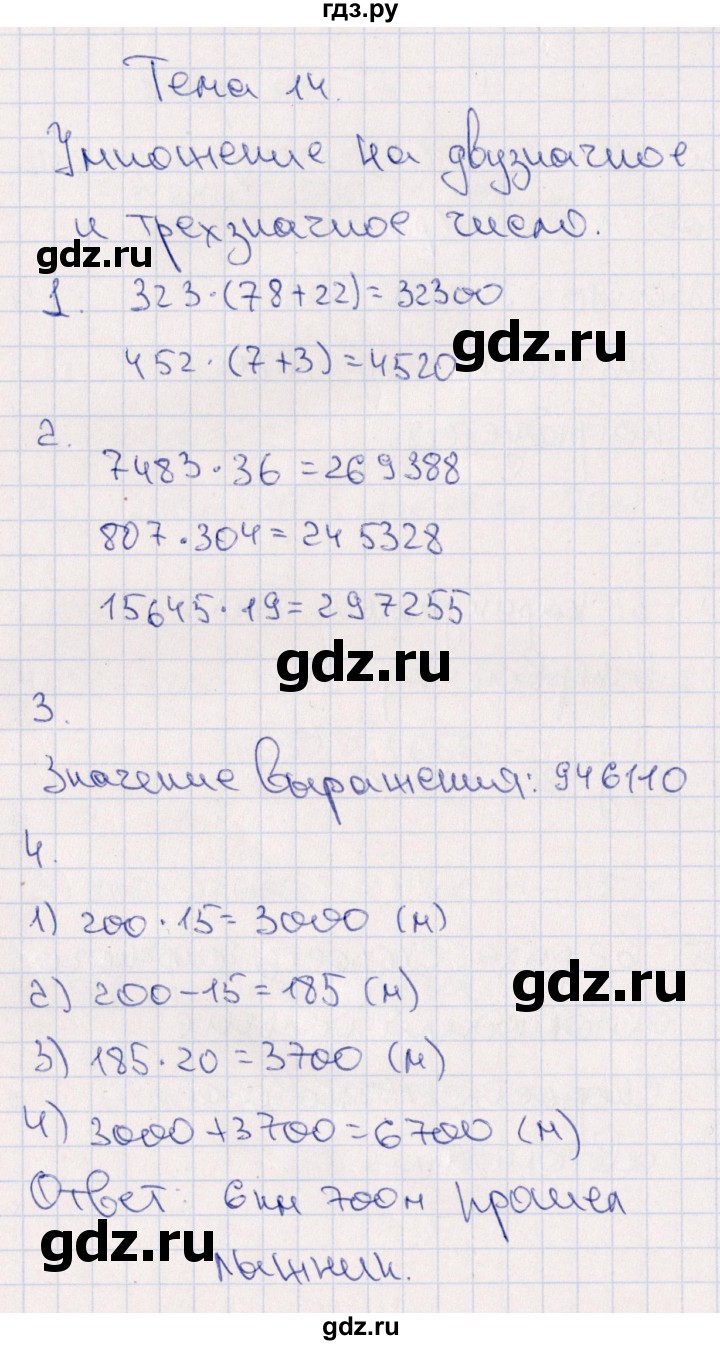 гдз.ру
Тема 14.
Умножение на двузначное
и трехзначное число.
gdz.ru
1. 323·(78+22)=32300
gdz.ru
452·(7+3)=4520
2.
7483·36=269388
807·304=245328
15645·19=297255
gdz.ru
3.
Значение выражения: 946110
4.
1) 200·15=3000 (м)
2) 200-15=185 (м)
gdz.ru
3) 185·20=3700 (м)
4) 3000+3700=6700 (м)
Ответ: 6км 700м прошел
gdz.ru
лыжник.
gdz.ru